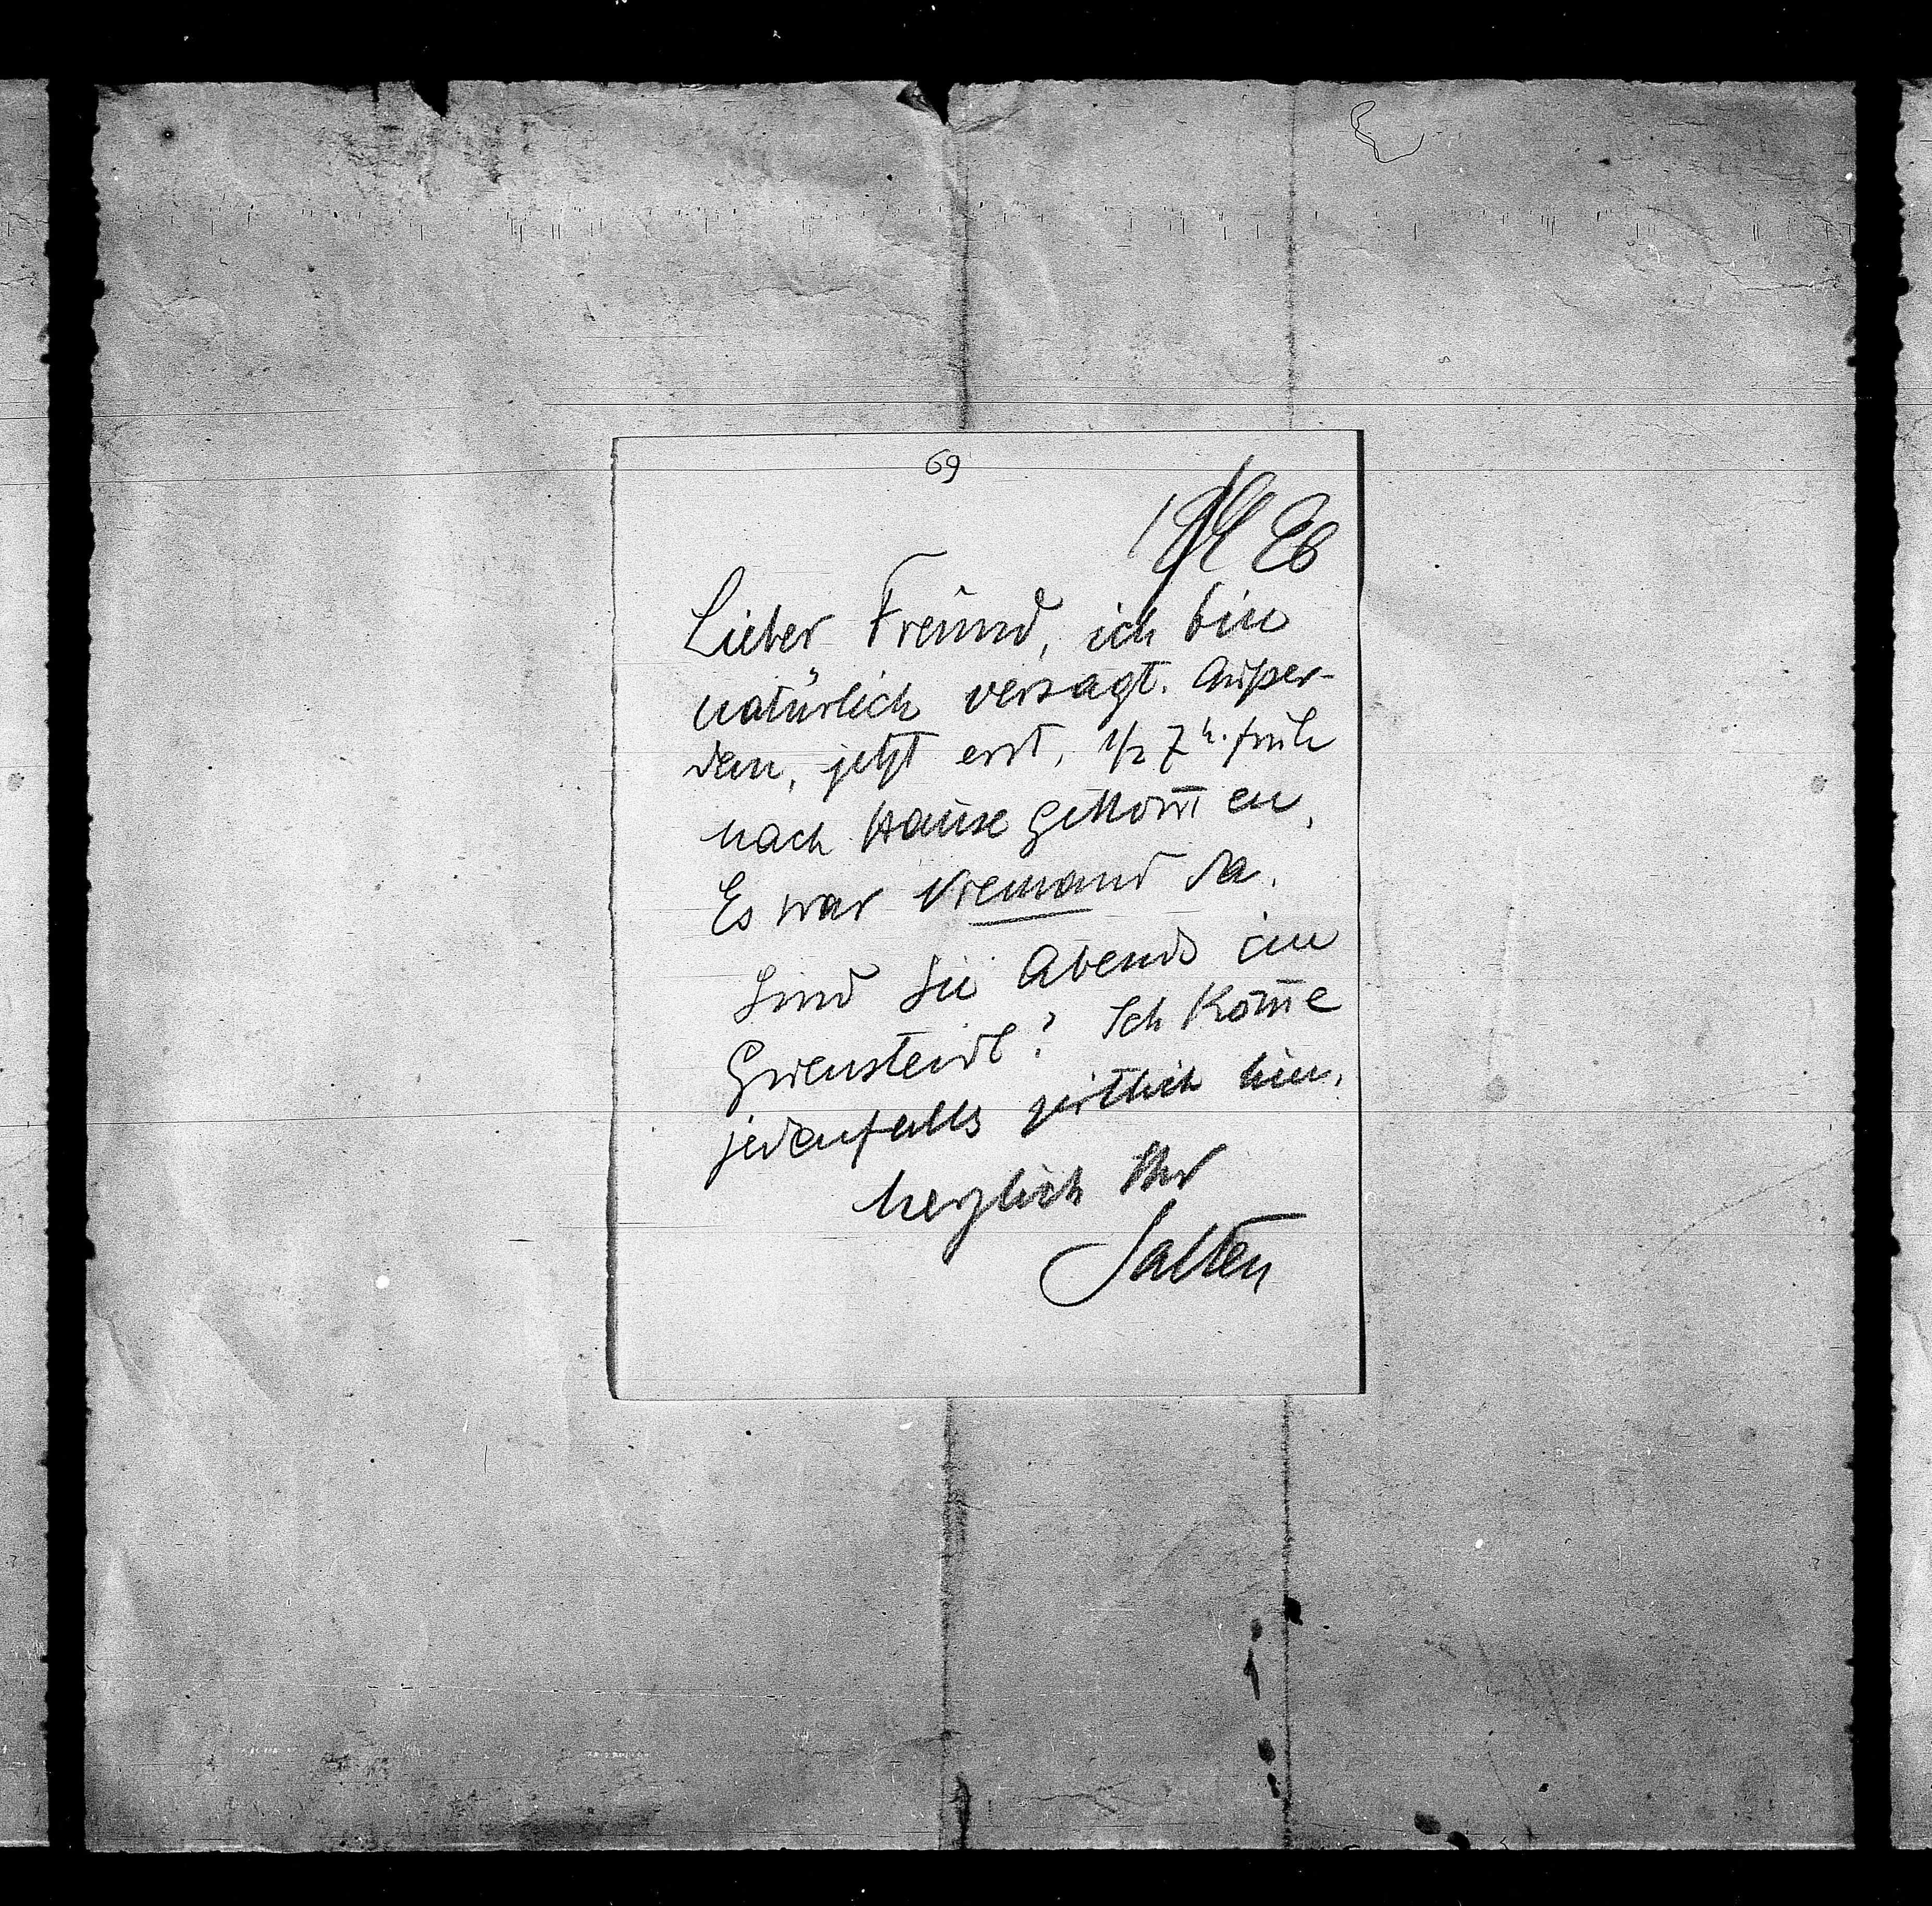 69
Lieber Freund, ich bin
natürlich versagt. Außer-
dem, jetzt erst, 1/2 7 h. früh
nach Hause gekom̅en.
Es war Niemand da.
Sind Sie Abends im
Griensteidl? Ich kom̅e
jedenfalls zeitlich hin.
herzlich Ihr
Salten